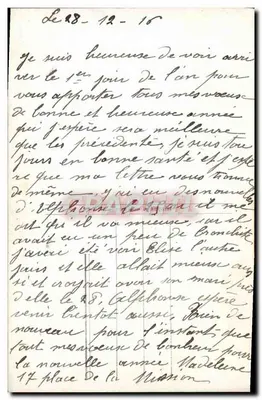 Le 28-12-16
Je suis heureuse de voir arri
ver le 1er jour de l'an pour
vous apporter tous mes voeux
de bonne et heureuse année
qui j'espère sera meilleure
que les précédentes, je suis tou
jours en bonne santé et j'espè
re que ma lettre vous trouve
de même. j'ai eu des nouvelles
d'Alphonse le il me
dit qu'il va mieux, car il
avait eu un peu de bronchite
j'avais été voir Elise l'autre
jour et elle allait mieux
si et croyait avoir son mari près
d'elle le 28, Alphonse espère
venir bientôt aussi, Rien de
nouveau pour l'instant que
tout mes voeux de bonheur pour
la nouvelle année. Madeleine
17 place de la Mission